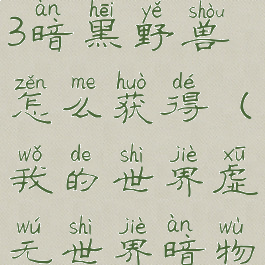 àn hēi yě shòu
3暗黑野兽
zěn me huò dé
怎么获得(
wǒ de shì jiè xū
我的世界虚
wú shì jiè àn wù
无世界暗物